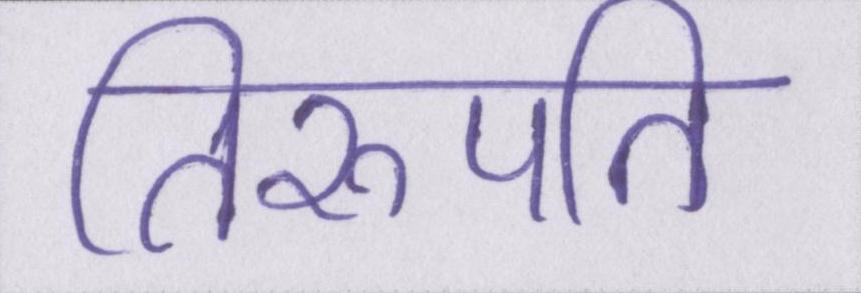 तिरूपति